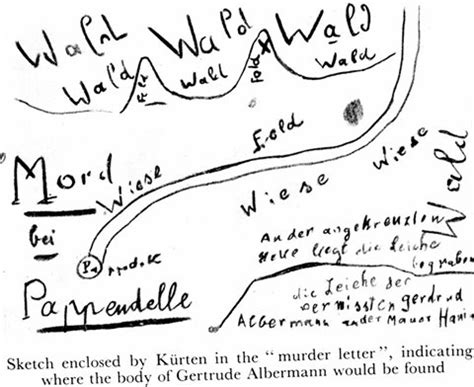 Wald Wald Wald
Wald Wald Wald
Feld
Feld
Wiese Wiese
Mord Wiese
bei
Wald
Pappendelle
An der angekreuzten
Stelle liegt die Leiche
begraben
die Leiche der
vermissten Gerdrud
Albermann an der Mauer
Sketch enclosed by Kürten in the “murder letter”, indicating
where the body of Gertrude Albermann would be found